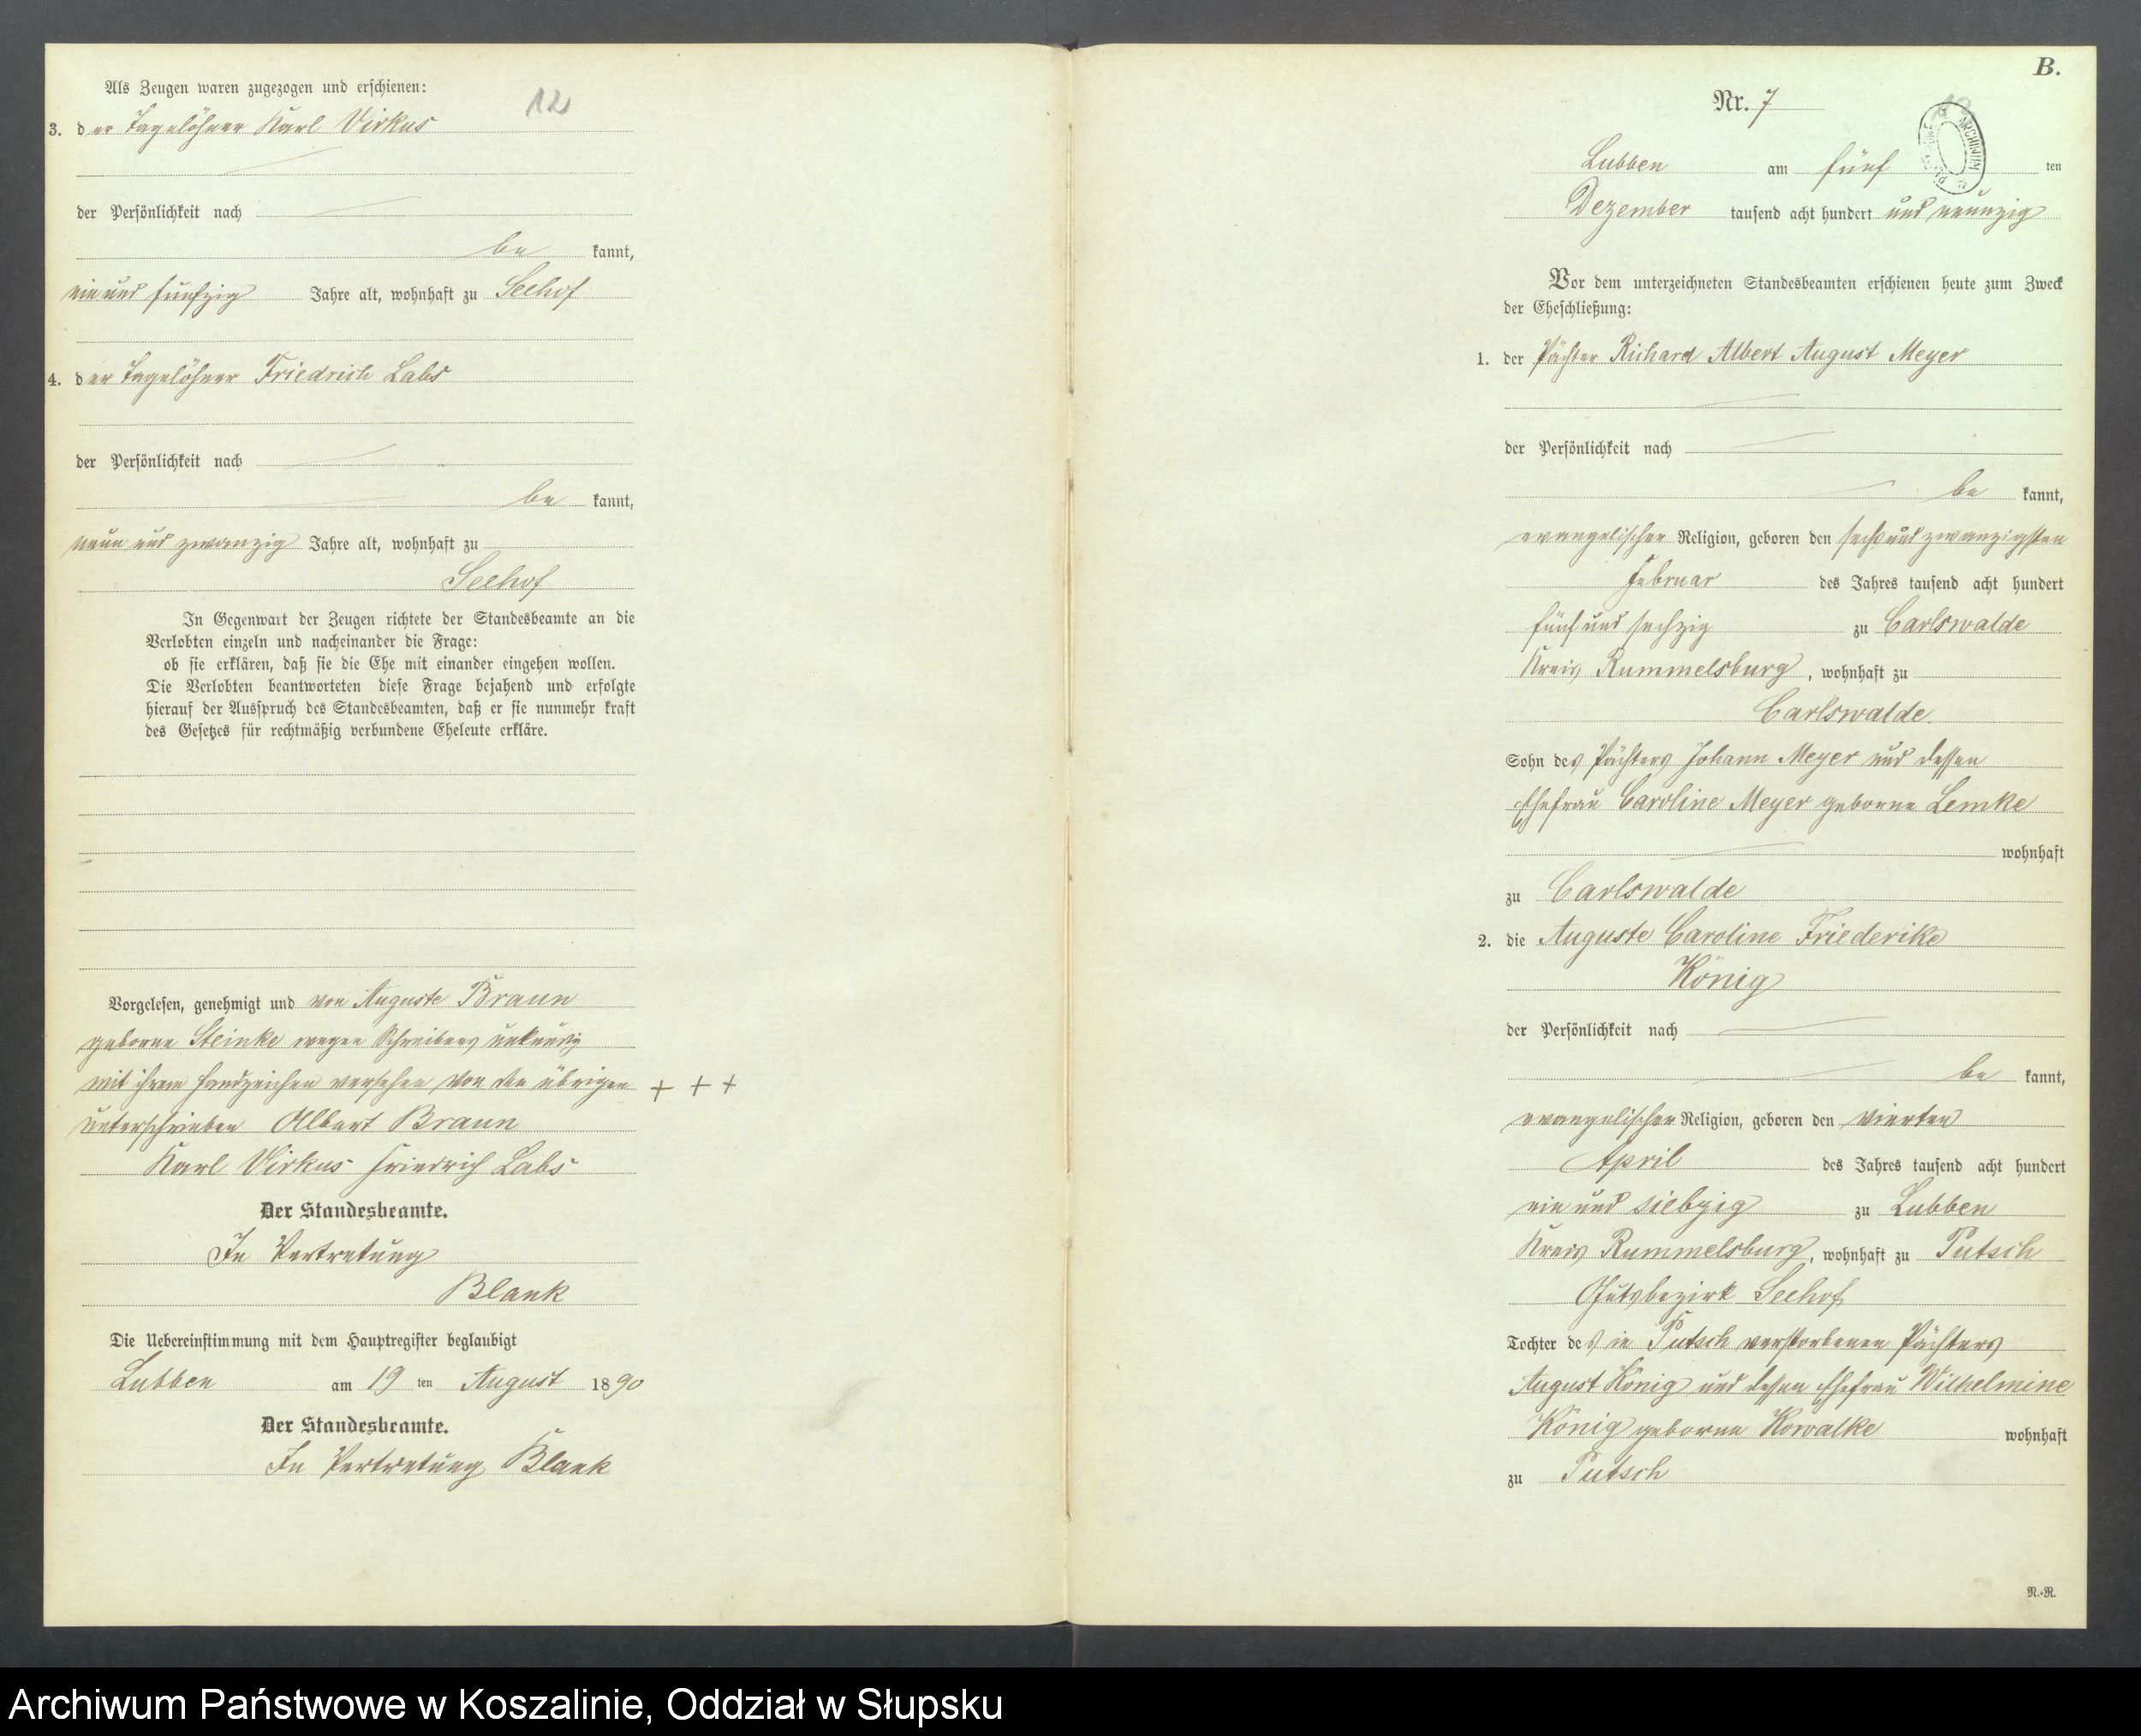 Als Zeugen waren zugezogen und erschienen:
12
3. der Tagelöhner Karl Virkus
der Persönlichkeit nach
be kannt,
ein und fünfzig Jahre alt, wohnhaft zu Seehof
4. der Tagelöhner Friedrich Labs
der Persönlichkeit nach
be kannt,
neun und zwanzig Jahre alt, wohnhaft zu
Seehof
In Gegenwart der Zeugen richtete der Standesbeamte an die
Verlobten einzeln und nacheinander die Frage:
ob sie erklären, daß sie die Ehe mit einander eingehen wollen.
Die Verlobten beantworteten diese Frage bejahend und erfolgte
hierauf der Ausspruch des Standesbeamten, daß er sie nunmehr kraft
des Gesetzes für rechtmäßig verbundene Eheleute erkläre.
Vorgelesen, genehmigt und von Auguste Braun
geborne Steinke wegen Schreibens unkundig
mit ihrem Handzeichen versehen von den übrigen + + +
unterschrieben Albert Braun
Karl Virkus Friedrich Labs
Der Standesbeamte.
In Vertretung
Blank
Die Uebereinstimmung mit dem Hauptregister beglaubigt
Lubben am 19 ten August 1890
Der Standesbeamte.
In Vertretung Blank
B.
Nr. 7
ARCHIWUM
Lubben am fünf ten
Dezember tausend acht hundert und neunzig
Vor dem unterzeichneten Standesbeamten erschienen heute zum Zweck
der Eheschließung:
1. der Pächter Richard Albert August Meyer
der Persönlichkeit nach
be kannt,
evangelischer Religion, geboren den sechsundzwanzigsten
Februar des Jahres tausend acht hundert
fünf und sechzig zu Carlswalde
Kreis Rummelsburg, wohnhaft zu
Carlswalde
Sohn des Pächters Johann Meyer und dessen
Ehefrau Caroline Meyer geborne Lemke
wohnhaft
zu Carlswalde
2. die Auguste Caroline Friederike
König
der Persönlichkeit nach
be kannt,
evangelischer Religion, geboren den vierten
April des Jahres tausend acht hundert
ein und siebzig zu Lubben
Kreis Rummelsburg, wohnhaft zu Putsch
Gutsbezirk Seehof
Tochter des in Putsch verstorbenen Pächters
August König und dessen Ehefrau Wilhelmine
König geborne Kowalke wohnhaft
zu Putsch
N.-R.
Archiwum Państwowe w Koszalinie, Oddział w Słupsku